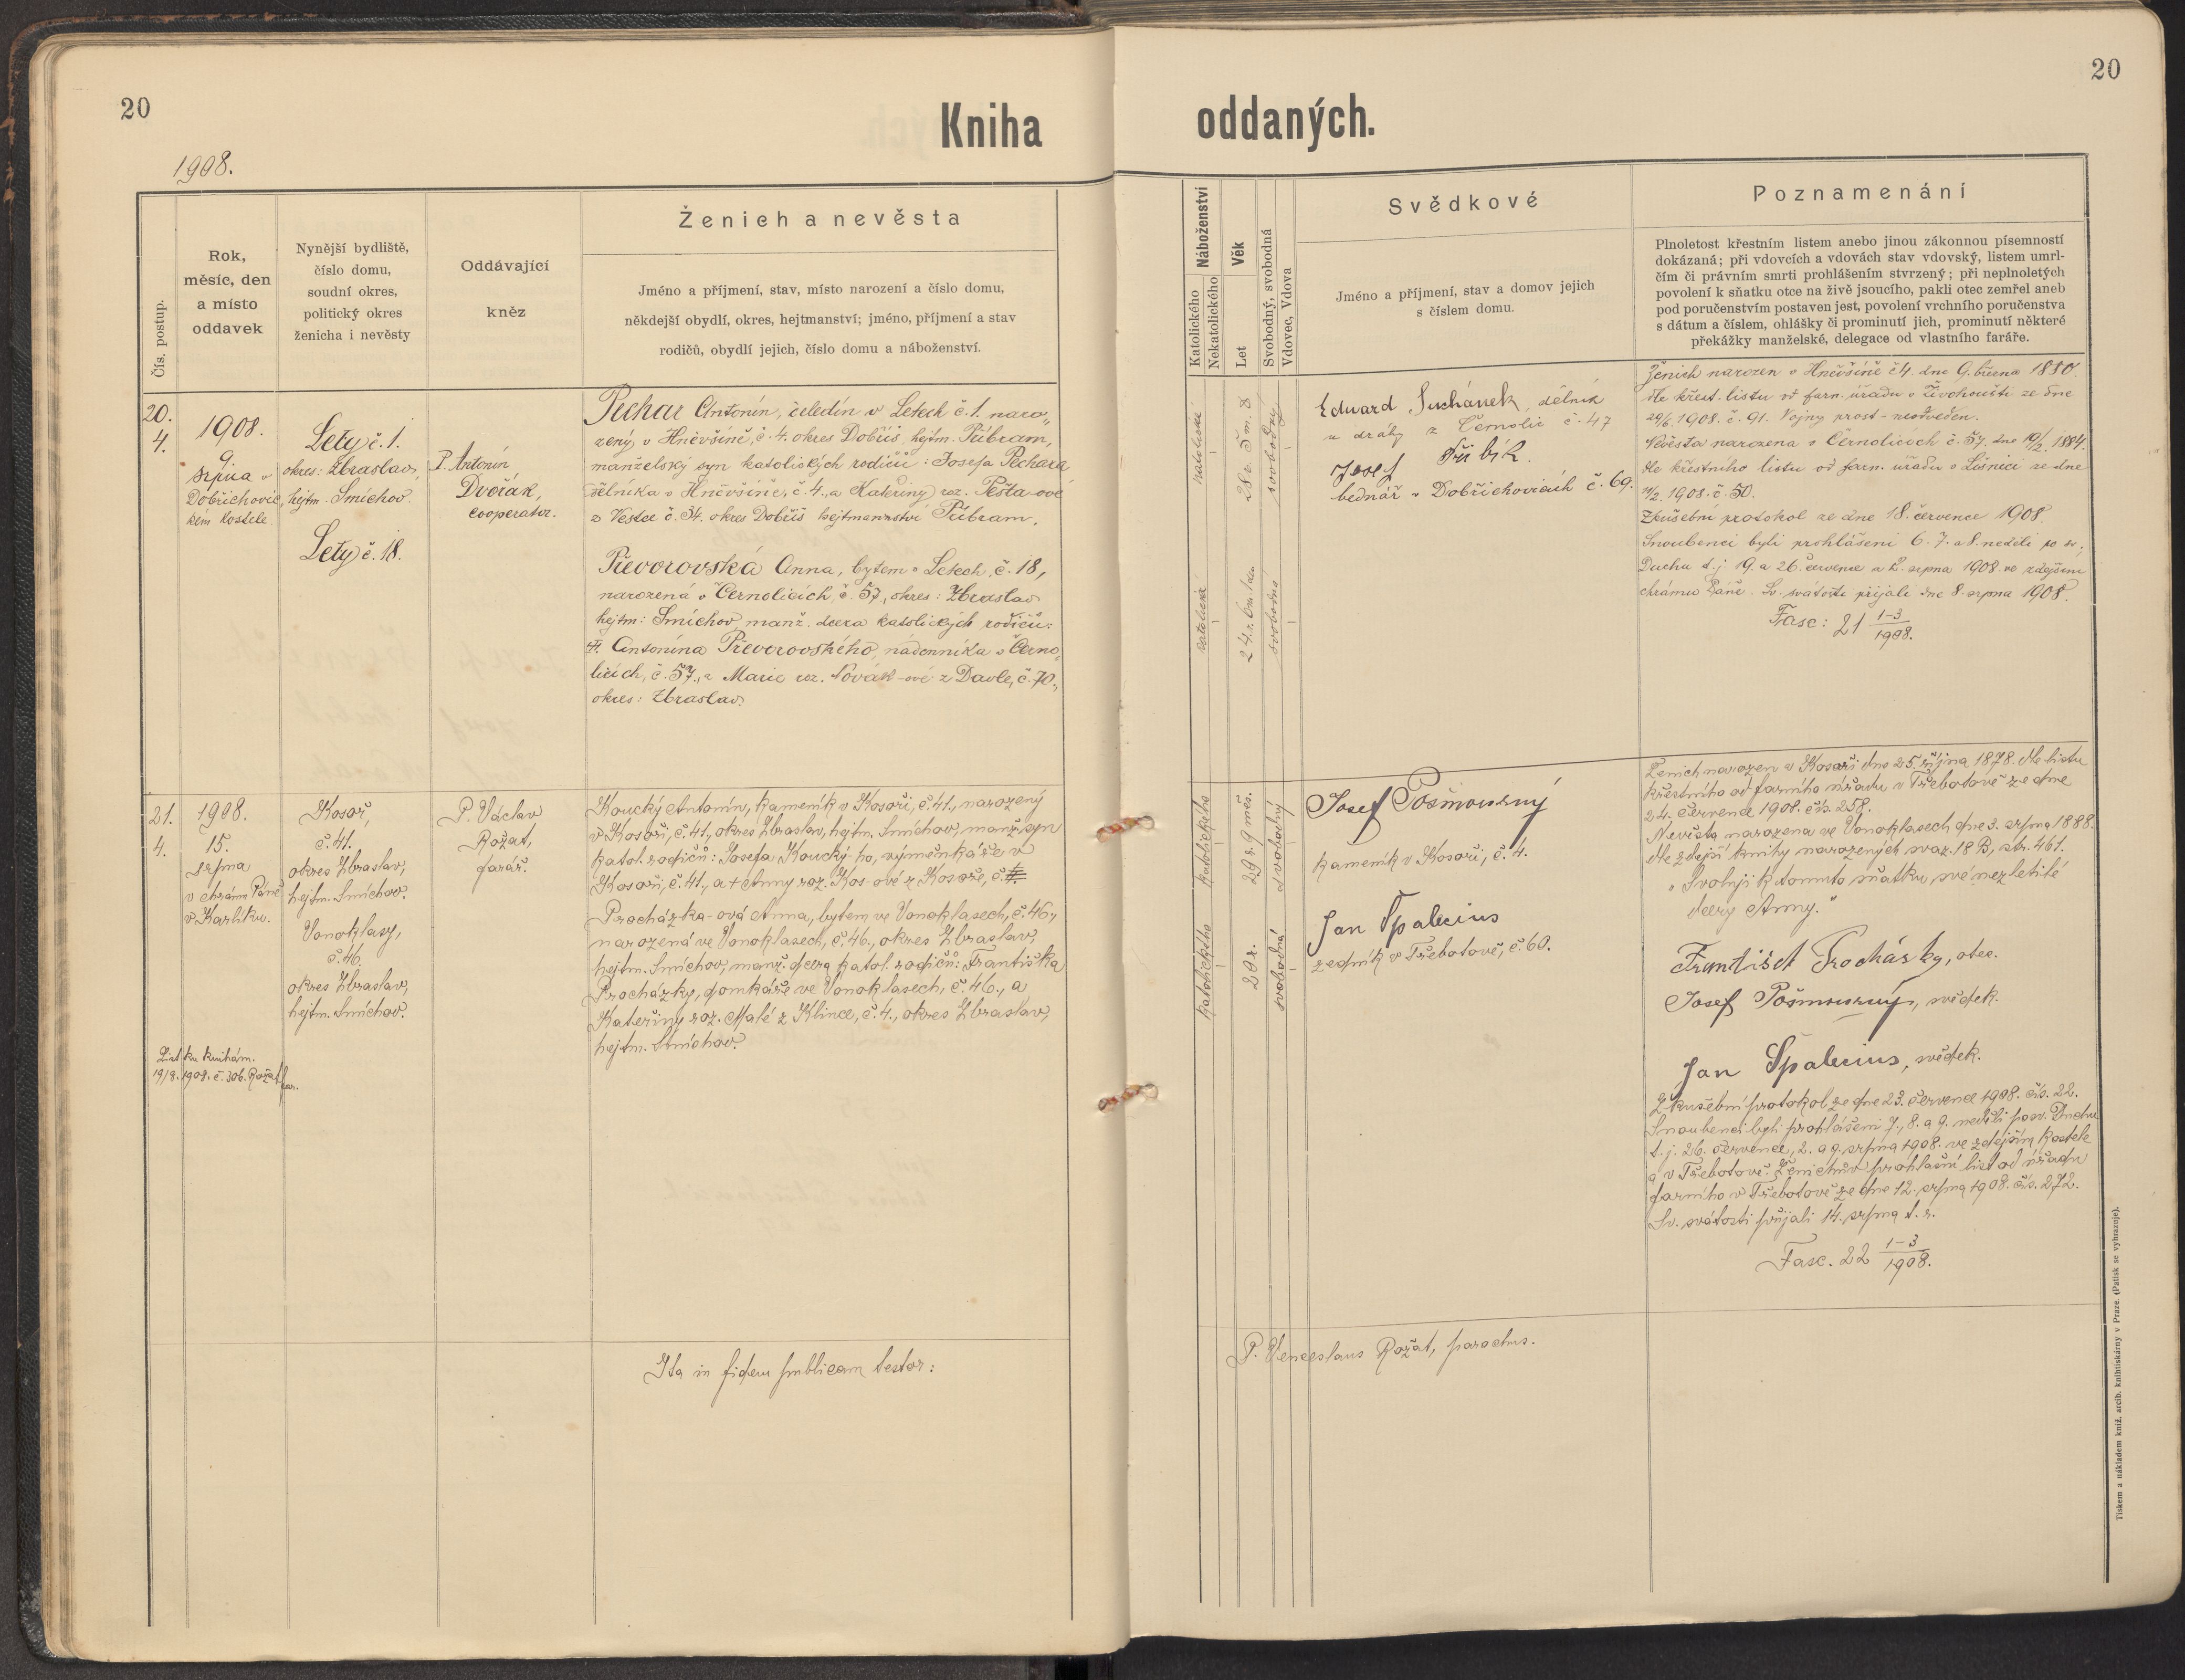 20
20
Kniha
oddaných.
1908.
Čís. postup.
Rok,
měsíc, den
a místo
oddavek
Nynější bydliště,
číslo domu,
soudní okres,
politický okres
ženicha i nevěsty
Oddávající
kněz
Ženich a nevěsta
Jméno a příjmení, stav, místo narození a číslo domu,
někdejší obydlí, okres, hejtmanství; jméno, příjmení a stav
rodičů, obydlí jejich, číslo domu a náboženství.
Náboženství
Katolického
Nekatolického
Věk
Let
Svobodný, svobodná
Vdovec, Vdova
Svědkové
Jméno a příjmení, stav a domov jejich
s číslem domu.
Poznamenání
Plnoletost křestním listem anebo jinou zákonnou písemností
dokázaná; při vdovcích a vdovách stav vdovský, listem umrl-
čím či právním smrti prohlášením stvrzený; při neplnoletých
povolení k sňatku otce na živě jsoucího, pakli otec zemřel aneb
pod poručenstvím postaven jest, povolení vrchního poručenstva
s dátum a číslem, ohlášky či prominutí jich, prominutí některé
překážky manželské, delegace od vlastního faráře.
20.
4.
1908.
9.
srpna v
Dobřichovic,
kém kostele.
Lety č. 1.
okres: Zbraslav,
hejtm. Smíchov.
Lety č. 18.
P. Antonín
Dvořák,
cooperator.
Pechar Antonín, čeledín v Letech č. 1. naro„
zený v Hněvšíně, č. 4. okres Dobříš, hejtm. Příbram,
manželský syn katolických rodičů: Josefa Pechara
dělníka v Hněvšíně, č. 4., a Kateřiny roz. Pešta-ové
z Vestce č. 34. okres Dobříš hejtmanství Příbram.
Převorovská Anna, bytem v Letech, č. 18,
narozená v Černolicích, č. 57., okres: Zbraslav
hejtm: Smíchov, manž. dcera katolických rodičů:
Antonína Převorovského, nádenníka v Černo„
licích, č. 57., a Marie roz. Novák-ové z Davle, č. 70.,
okres: Zbraslav.
katolické
28 r. 5 m. 8
svobodný
katolická
24 r. 6 m. 1 den
svobodná
Eduard Suchánek, dělník
u dráhy z Černolic č. 47
Josef Přibík.
bednář v Dobřichovicích č. 69.
Ženich narozen v Hněvšíně č 4. dne 9. března 1880.
dle křest. listu od farn. úřadu v Živohoušti ze dne
29/6. 1908. č. 91. Vojny prost - neodveden.
Nevěsta narozena v Černolicích č. 57. dne 10/2. 1884.
dle křestního listu od farn. úřadu v Líšnici ze dne
11/2. 1908. č. 50.
Zkušební protokol ze dne 18. července 1908.
Snoubenci byli prohlášeni 6. 7. a 8. neděli po sv.
Duchu t. j. 19. a 26. července a 2. srpna 1908. ve zdejším
chrámu Páně. Sv. svátosti přijali dne 8. srpna 1908.
Fasc: 21 1-3
1908.
21.
4.
1908.
15.
srpna
v chrámu Páně
v Karlíku.
Kosoř,
č. 41.
okres Zbraslav,
hejtm. Smíchov.
Vonoklasy,
č. 46.
okres Zbraslav,
hejtm. Smíchov.
P. Václav
Rožat,
farář.
Koucký Antonín, kameník v Kosoři, č. 41., narozený
v Kosoři, č. 41., okres Zbraslav, hejtm. Smíchov, manž. syn
katol. rodičů: Josefa Koucký-ho, výměnkáře v
Kosoři, č. 41., a † Anny roz. Kos-ové z Kosoře, č.
Procházka-ová Anna, bytem ve Vonoklasech, č. 46.,
narozená ve Vonoklasech, č. 46., okres Zbraslav,
hejtm. Smíchov, manž. dcera katol. rodičů: Františka
Procházky, domkáře ve Vonoklasech, č. 46., a
Kateřiny roz. Malé z Klince, č. 4., okres Zbraslav,
hejtm. Smíchov.
List ku knihám.
19/8. 1908. č. 306. Rožat
far.
katolického
29 r. 9 měs.
svobodný
katolického
20 r.
svobodná
Josef Pošmourný
kameník v Kosoři, č. 4.
Jan Špalecius
zedník v Třebotově, č. 60.
Ženich narozen v Kosoři dne 25. října 1878. dle listu
křestního od farního úřadu v Třebotově ze dne
24. července 1908. čís. 258.
Nevěsta narozena ve Vonoklasech dne 3. srpna 1888.
dle zdejší knihy narozených svaz. 18 B, str. 461.
„Svoluji k tomuto sňatku své nezletilé
dcery Anny."
František Procházka, otec.
Josef Pošmourný, svědek.
Jan Špalecius, svědek.
Zkušební protokol ze dne 23. července 1908. čís. 22.
Snoubenci byli prohlášeni 7., 8. a 9. neděli po sv. Duchu
t. j. 26. července, 2. a 9. srpna 1908. ve zdejším kostele
a v Třebotově. Ženichův prohlašní list od úřadu
farního v Třebotově ze dne 12. srpna 1908. čís. 272.
Sv. svátosti přijali 14. srpna t. r.
Fasc. 22 1-3
1908.
Ita in fidem publicam testor:
P. Venceslaus Rožat, parochus.
Tiskem a nákladem kníž. arcib. knihtiskárny v Praze. (Patisk se vyhrazuje).